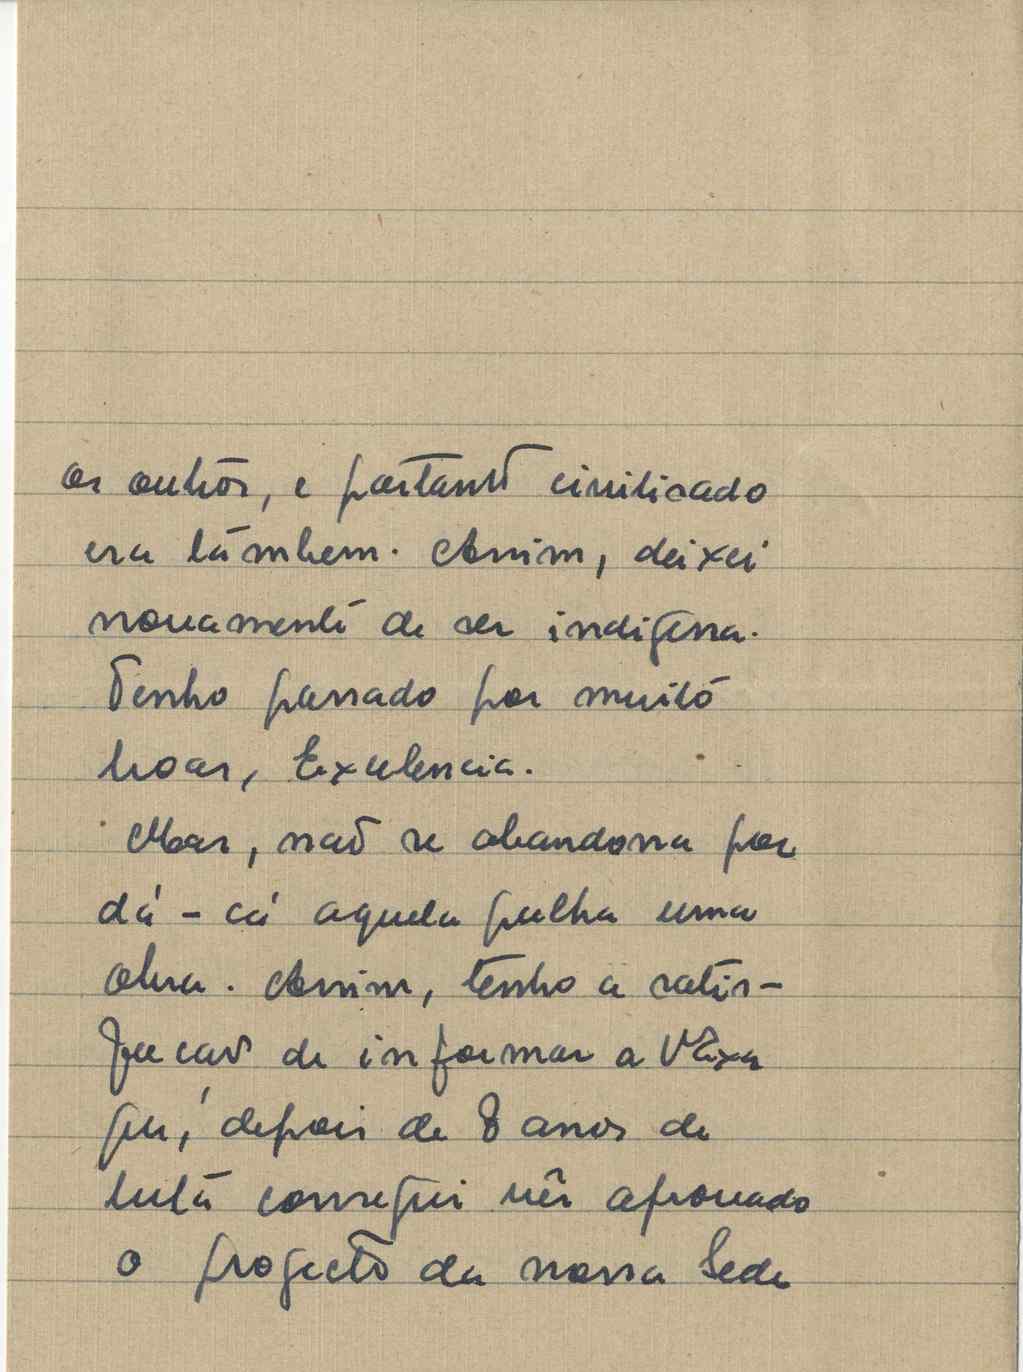 os outros, e portanto civilisado
era tâmbem. Assim, deixei
novamente de ser indigena.
Tenho passado por muito
boas, Excelencia.
Mas, não se abandona por
dá-cá aquela palha uma
obra. Assim, tenho a satis-
facão de informar a VExa
que, depois de 8 anos de
luta consegui vêr aprovado
o projecto da nossa Sede